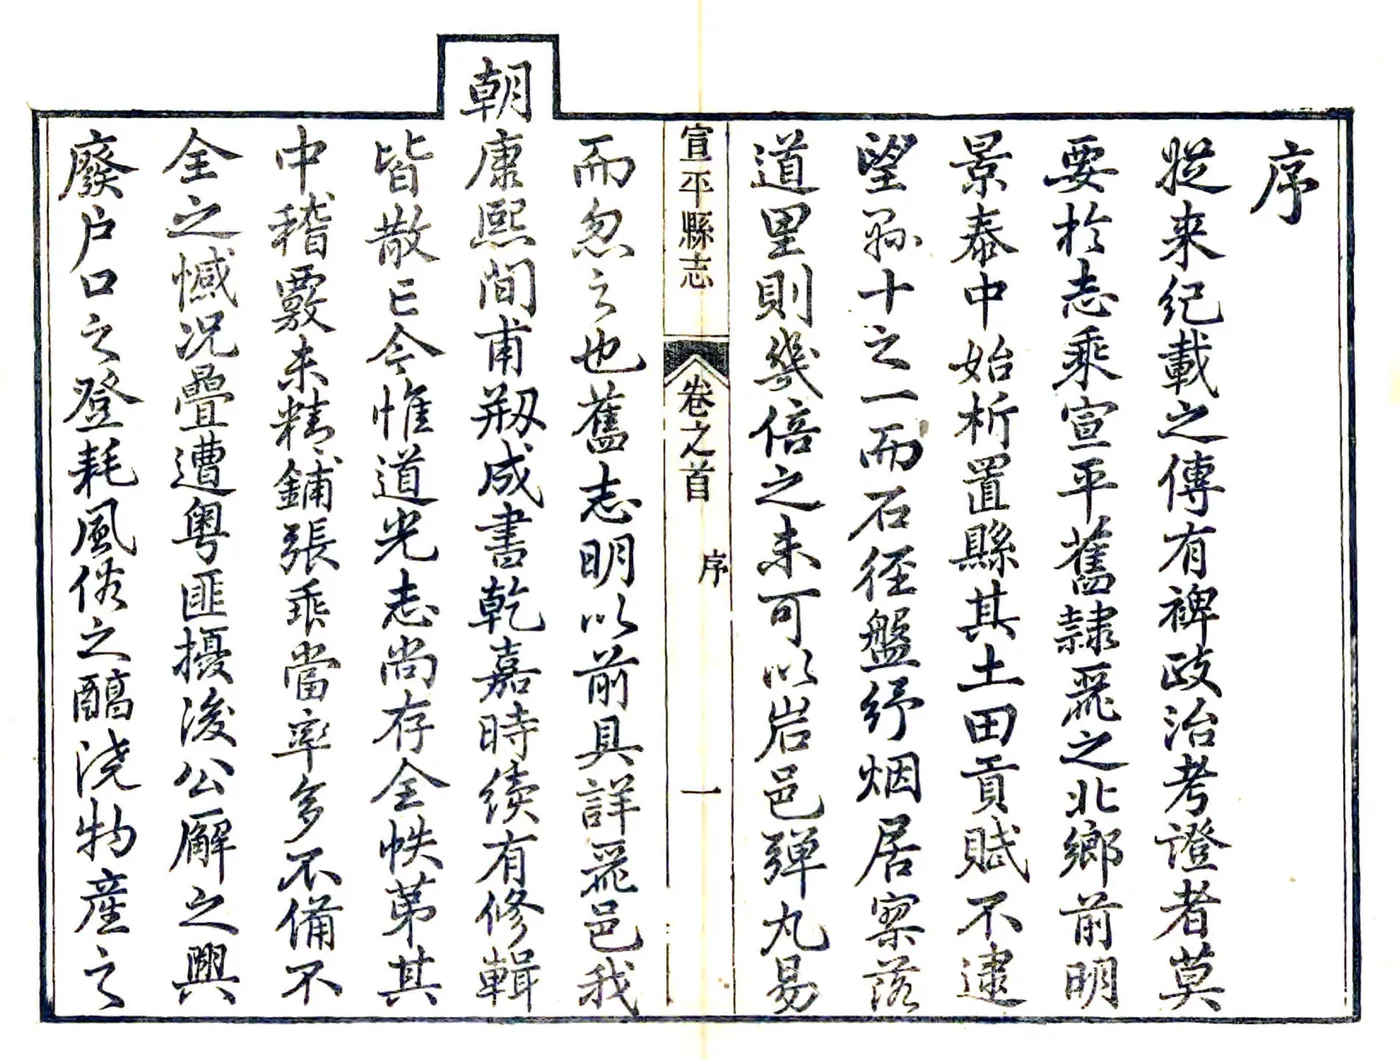 序
從来紀載之傳有裨政治考證者莫
要於志乘宣平舊隷麗之北鄉前明
景泰中始析置縣其土田貢賦不逮
望縣十之一而石徑盤紆烟居寥落
道里則幾倍之未可以岩邑彈丸易
宣平縣志
卷之首
序
一
而忽之也舊志明以前具詳麗邑我
朝康熙間甫剏成書乾嘉時續有修輯
皆散亡今惟道光志尚存全帙第其
中稽覈未精鋪張乖當率多不備不
全之憾况疊遭粤匪擾後公廨之興
廢户口之登耗風俗之醕澆物產之